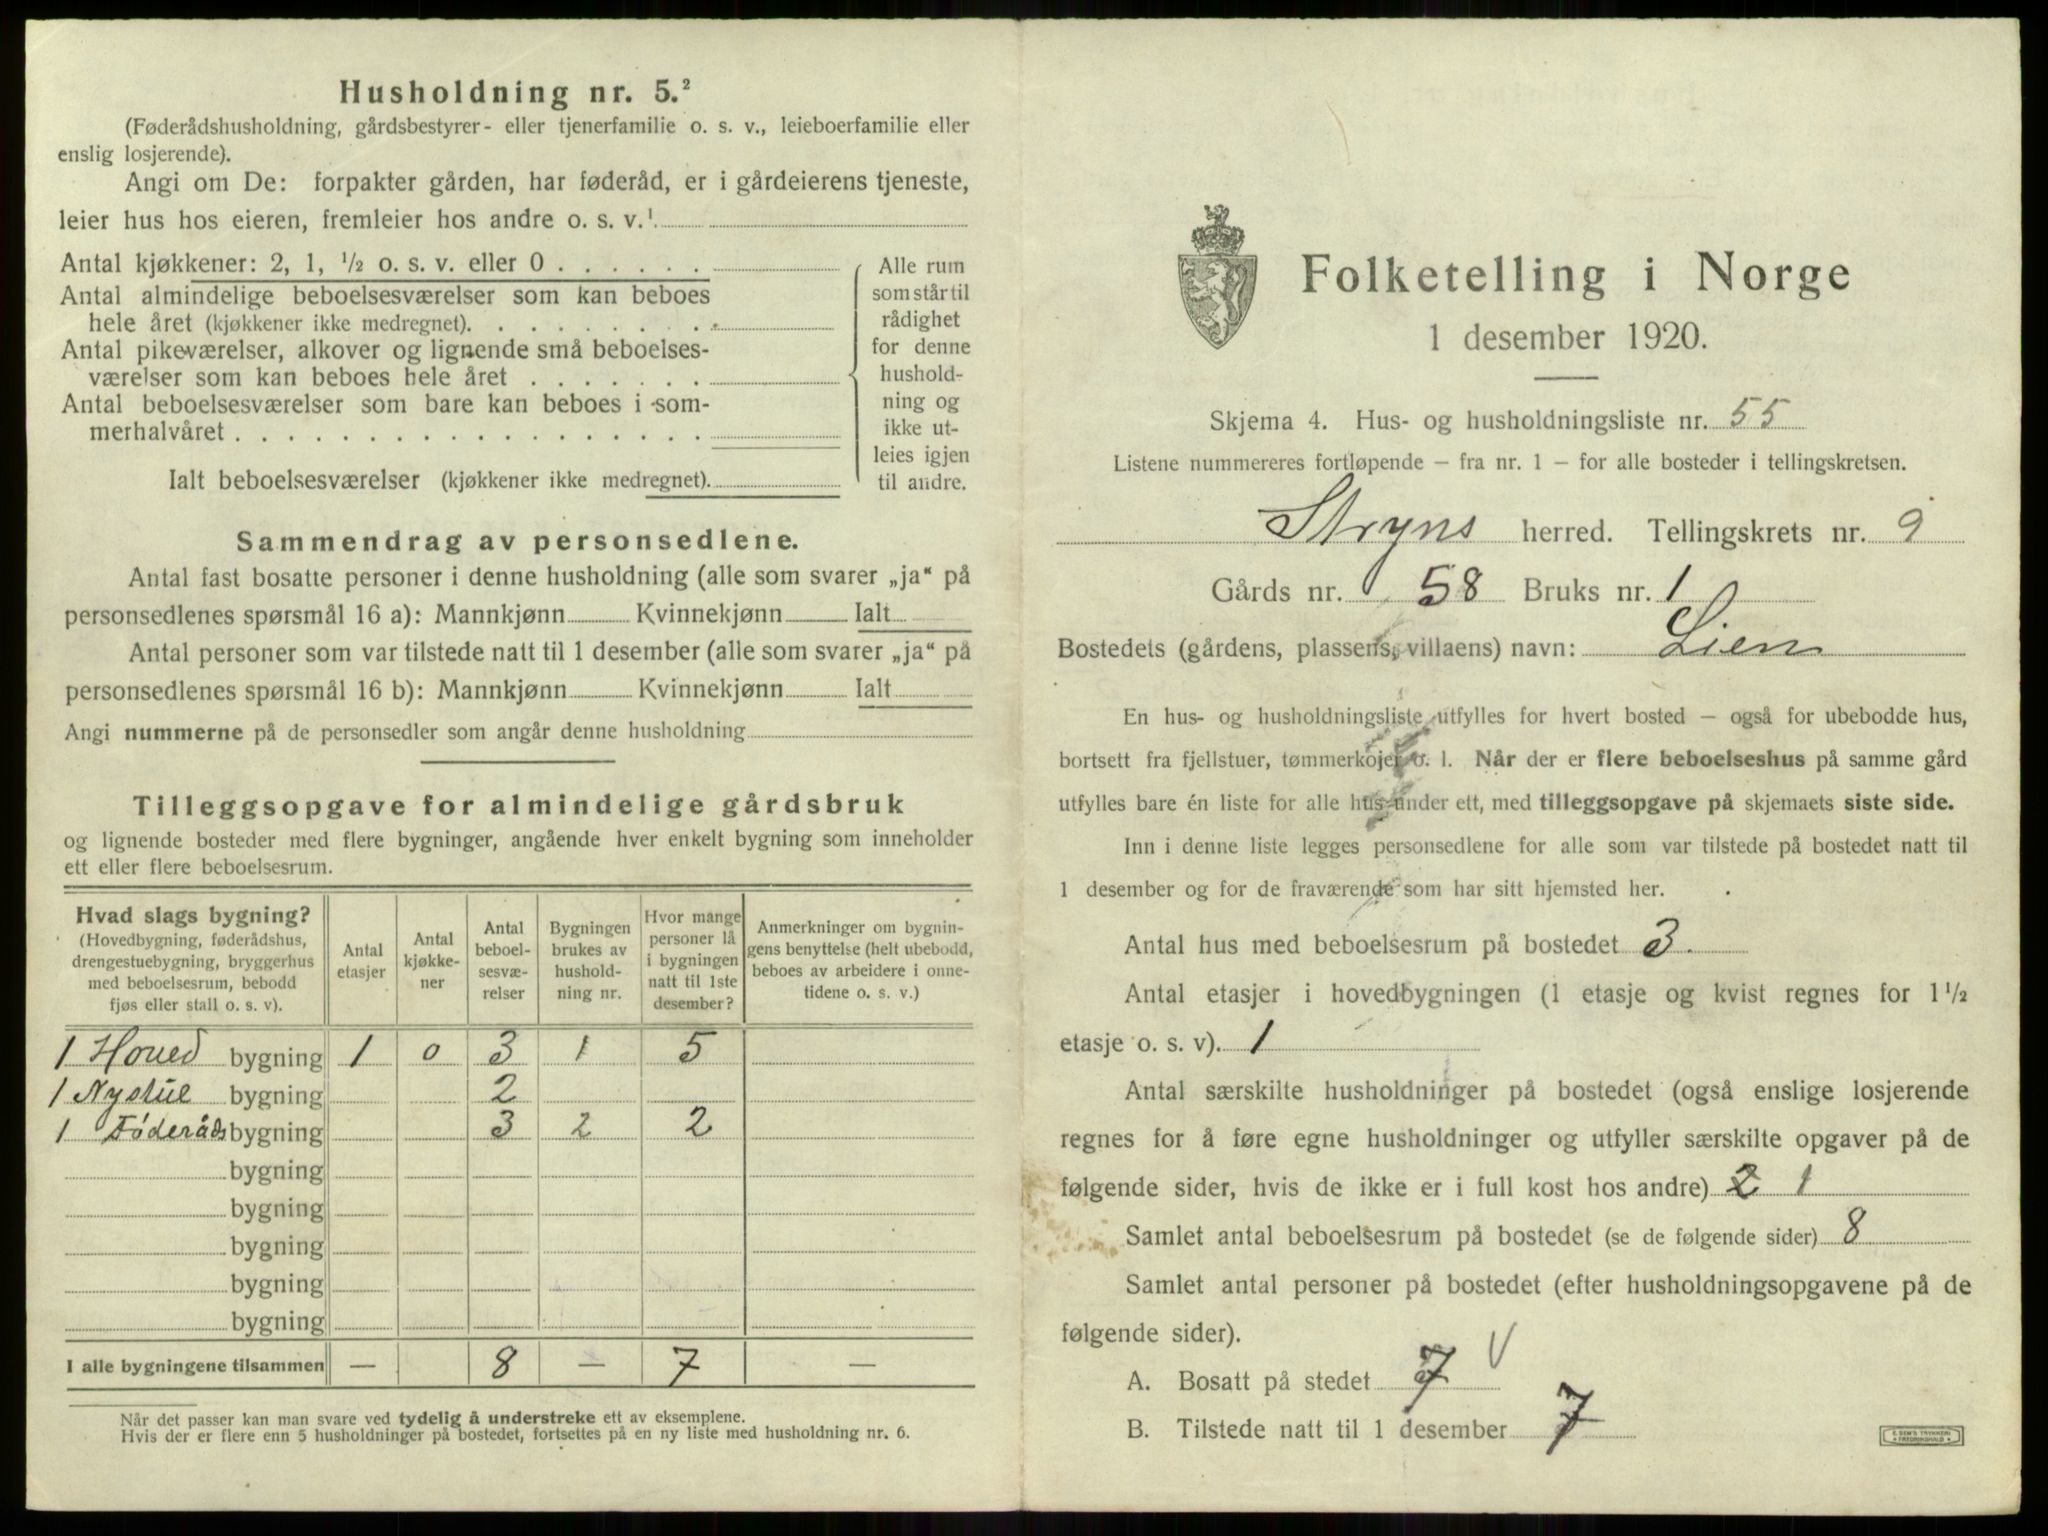 Husholdning nr. 5.²
(Føderådshusholdning, gårdsbestyrer- eller tjenerfamilie o. s. v., leieboerfamilie eller
enslig losjerende).
Angi om De: forpakter gården, har føderåd, er i gårdeierens tjeneste,
leier hus hos eieren, fremleier hos andre o. s. v.¹
Antal kjøkkener: 2, 1, ½ o. s. v. eller 0 . . . . . .
Antal almindelige beboelsesværelser som kan beboes
hele året (kjøkkener ikke medregnet). . . . . . . . .
Antal pikeværelser, alkover og lignende små beboelses-
værelser som kan beboes hele året . . . . . . .
Antal beboelsesværelser som bare kan beboes i som-
merhalvåret . . . . . . . . . . . . . . . . . .
Ialt beboelsesværelser (kjøkkener ikke medregnet).
Alle rum
som står til
rådighet
for denne
hushold-
ning og
ikke ut-
leies igjen
til andre.
Sammendrag av personsedlene.
Antal fast bosatte personer i denne husholdning (alle som svarer „ja“ på
personsedlenes spørsmål 16 a): Mannkjønn Kvinnekjønn Ialt
Antal personer som var tilstede natt til 1 desember (alle som svarer „ja“ på
personsedlenes spørsmål 16 b): Mannkjønn Kvinnekjønn Ialt
Angi nummerne på de personsedler som angår denne husholdning
Tilleggsopgave for almindelige gårdsbruk
og lignende bosteder med flere bygninger, angående hver enkelt bygning som inneholder
ett eller flere beboelsesrum.
Hvad slags bygning?
(Hovedbygning, føderådshus,
drengestuebygning, bryggerhus
med beboelsesrum, bebodd
fjøs eller stall o. s. v).
Antal
etasjer
Antal
kjøkke-
ner
Antal
beboel-
sesvæ-
relser
Bygningen
brukes av
hushold-
ning nr.
Hvor mange
personer lå
i bygningen
natt til 1ste
desember?
Anmerkninger om bygnin-
gens benyttelse (helt ubebodd,
beboes av arbeidere i onne-
tidene o. s. v.)
1 Hoved bygning 1 0 3 1 5
1 Nystue bygning 2
1 Føderåds bygning 3 2 2
bygning
bygning
bygning
bygning
bygning
I alle bygningene tilsammen — 8 — 7 —
Når det passer kan man svare ved tydelig å understreke ett av eksemplene.
Hvis der er flere enn 5 husholdninger på bostedet, fortsettes på en ny liste med husholdning nr. 6.
Folketelling i Norge
1 desember 1920.
Skjema 4. Hus- og husholdningsliste nr. 55
Listene nummereres fortløpende – fra nr. 1 – for alle bosteder i tellingskretsen.
Stryns herred. Tellingskrets nr. 9
Gårds nr. 58 Bruks nr. 1
Bostedets (gårdens, plassens, villaens) navn: Lien
En hus- og husholdningsliste utfylles for hvert bosted – også for ubebodde hus,
bortsett fra fjellstuer, tømmerkojer o. l. Når der er flere beboelseshus på samme gård
utfylles bare én liste for alle hus under ett, med tilleggsopgave på skjemaets siste side.
Inn i denne liste legges personsedlene for alle som var tilstede på bostedet natt til
1 desember og for de fraværende som har sitt hjemsted her.
Antal hus med beboelsesrum på bostedet 3.
Antal etasjer i hovedbygningen (1 etasje og kvist regnes for 1½
etasje o. s. v). 1
Antal særskilte husholdninger på bostedet (også enslige losjerende
regnes for å føre egne husholdninger og utfyller særskilte opgaver på de
følgende sider, hvis de ikke er i full kost hos andre) 2 1
Samlet antal beboelsesrum på bostedet (se de følgende sider) 8
Samlet antal personer på bostedet (efter husholdningsopgavene på de
følgende sider).
A. Bosatt på stedet 7 V
B. Tilstede natt til 1 desember 7
E. SEM'S TRYKKERI
FREDRIKSHALD